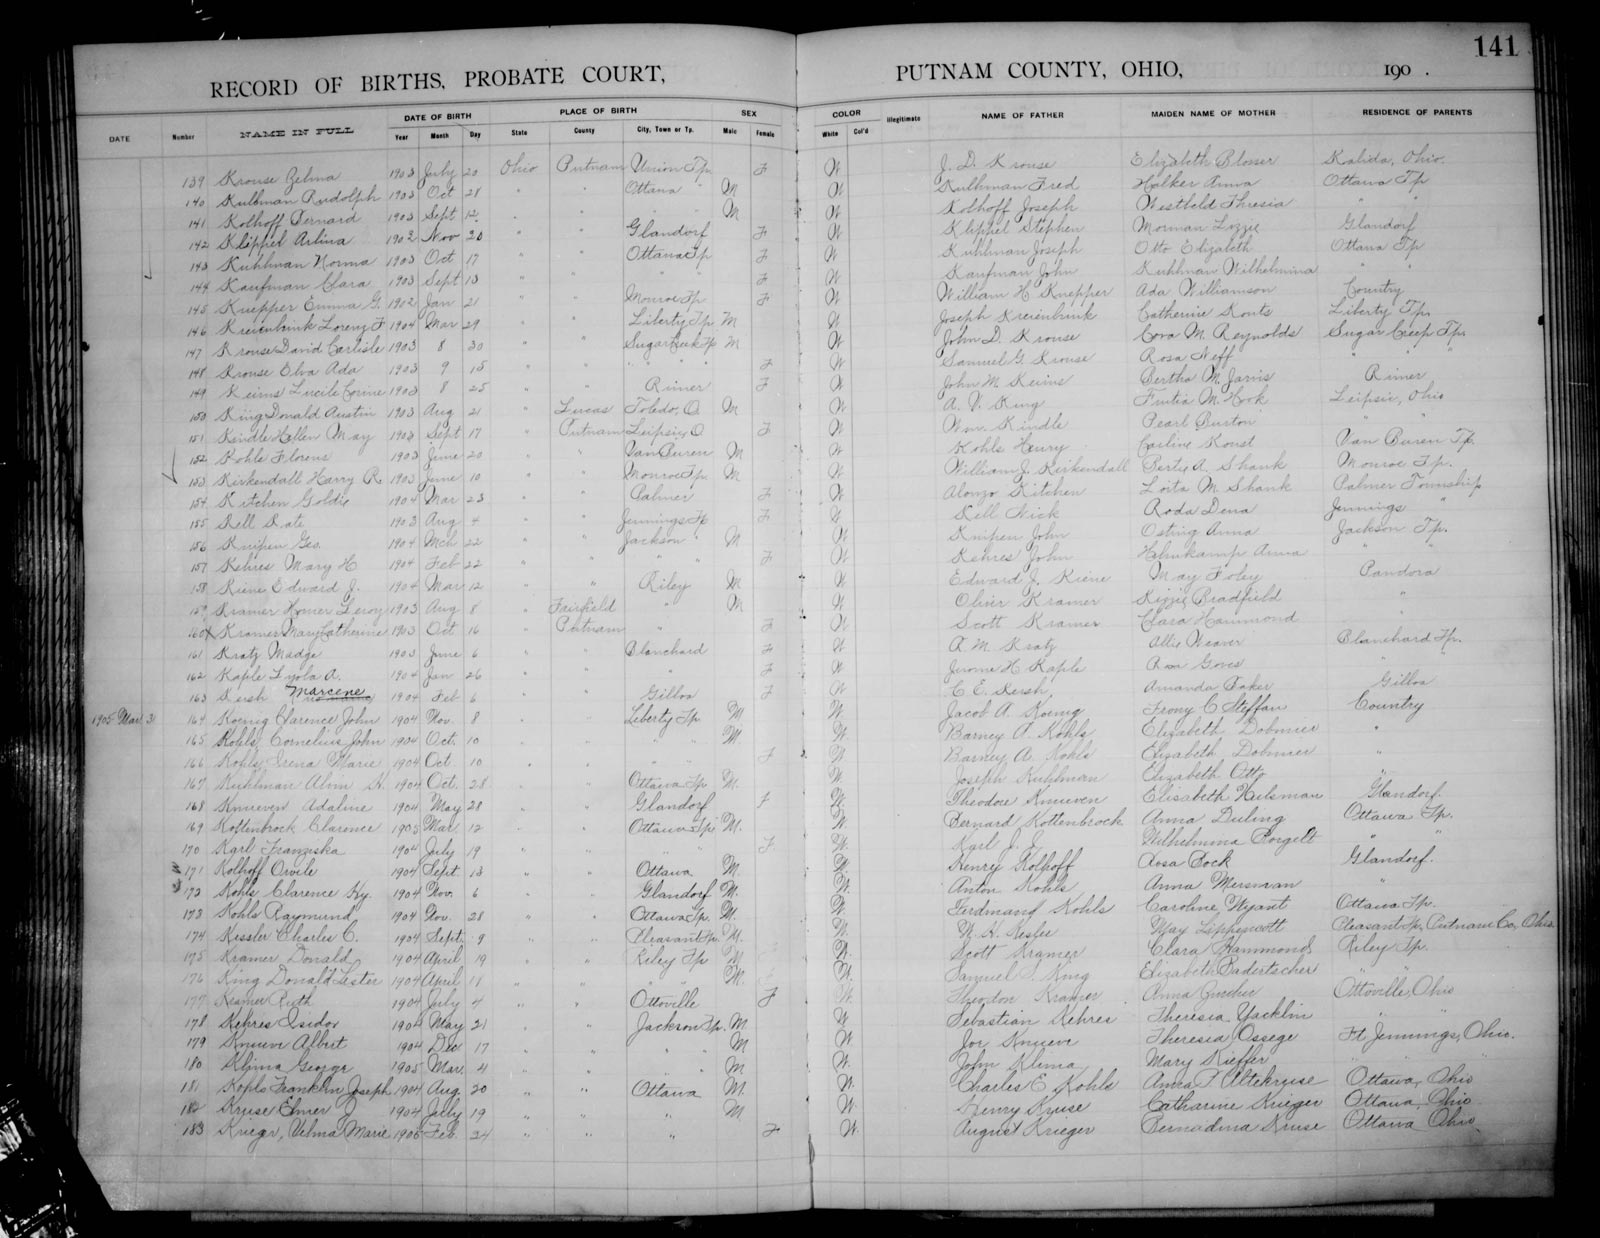 141
RECORD OF BIRTHS, PROBATE COURT, PUTNAM COUNTY, OHIO, 190 .
DATE Number NAME IN FULL DATE OF BIRTH Year Month Day PLACE OF BIRTH State County City, Town or Tp. SEX Male Female COLOR White Col'd Illegitimate NAME OF FATHER MAIDEN NAME OF MOTHER RESIDENCE OF PARENTS
139 Krouse Zelma 1903 July 20 Ohio Putnam Union Tp. F W J. D. Krouse Elizabeth Blosser Kalida, Ohio.
140 Kuhlman Rudolph 1903 Oct 28 " " Ottawa " M W Kuhlman Fred Halker Anna Ottawa Tp
141 Kolhoff Bernard 1903 Sept 12 " " " " M W Kolhoff Joseph Westhold Thresia " "
142 Klippel Arlina 1902 Nov 20 " " Glandorf F W Klippel Stephen Morman Lizzie Glandorf
143 Kuhlman Norma 1903 Oct 17 " " Ottawa Tp F W Kuhlman Joseph Otto Elizabeth Ottawa Tp
144 Kaufman Clara 1903 Sept 13 " " " " F W Kaufman John Kuhlman Wilhelmina " "
145 Knepper Emma G. 1902 Jan 21 " " Monroe Tp F W William H Knepper Ada Williamson Country
146 Kreienbrink Lorenz F 1904 Mar 29 " " Liberty Tp. M W Joseph Kreienbrink Catherine Konts Liberty Tp.
147 Krouse David Carlisle 1903 8 30 " " Sugar Creek Tp M W John D. Krouse Cora M. Reynolds Sugar Creep Tp.
148 Krouse Elva Ada 1903 9 15 " " " " F W Samuel G. Krouse Rosa Neff " " "
149 Keirns Lucile Corine 1903 8 25 " " Rimer F W John M Keirns Bertha M. Jarvis Rimer
150 King Donald Austin 1903 Aug 21 " Lucas Toledo, O. M W A. V. King M. Hook Leipsic, Ohio
151 Kindle Hellen May 1903 Sept 17 " Putnam Leipsic, O F W Wm. Kindle Pearl Burton " "
152 Kohls Florens 1903 June 20 " " Van Buren M W Kohls Henry Carline Konst Van Buren Tp.
153 Kirkendall Harry R. 1903 June 10 " " Monroe Tp. M W William J. Kirkendall A. Shank Monroe Tp.
154 Kitchen Goldie 1904 Mar 23 " " Palmer F W Alonzo Kitchen Loita M. Shank Palmer Township
155 Kell Kate 1903 Aug 4 " " Jennings Tp F W Kell Nick Roda Dena Jennings "
156 Knipen Geo. 1904 Mch 22 " " Jackson " M W Knipen John Osting Anna Jackson Tp.
157 Kehres Mary H 1904 Feb 22 " " " " F W Kehres John Anna " "
158 Kiene Edward J. 1904 Mar 12 " " Riley M W Edward J. Kiene May Foley Pandora
159 Kramer Homer Leroy 1903 Aug 8 " Fairfield " M W Oliver Kramer Kizzie Bradfield "
160 x Kramer Mary Catherine 1903 Oct 16 " Putnam " F W Scott Kramer Clara Hammond "
161 Kratz Madge 1903 June 6 " " Blanchard F W A. M. Kratz Allie Weaver Blanchard Tp.
162 Kaple Lyola A. 1904 Jan 26 " " " F W Jerome H Kaple Goves "
163 Kersh Marcene 1904 Feb 6 " " Gilboa F W C. E. Kersh Amanda Baker Gilboa
1905 Mar 31 164 Koenig Clarence John 1904 Nov. 8 " " Liberty Tp M W Jacob A. Koenig Frony C Steffan Country
165 Kohls, Cornelius John 1904 Oct. 10 " " " " M. W. Barney A. Kohls Elizabeth Dobmier "
166 Kohls, Irena Marie 1904 Oct 10 " " " " F W. Barney A. Kohls Elizabeth Dobmier "
167 Kuhlman Alvin H. 1904 Oct. 28 " " Ottawa Tp M. W. Joseph Kuhlman Elizabeth Otto "
168 Knueven Adaline 1904 May 28 " " Glandorf F W. Theodore Knueven Elisabeth Hulsman Glandorf.
169 Kottenbrock Clarence 1905 Mar. 12 " " Ottawa Tp. M. W. Bernard Kottenbrock Anna Duling Ottawa Tp.
170 Karl Franziska 1904 July 19 " " " " F W. Karl J. Wilhelmina Borgelt " "
171 Kolhoff Orvile 1904 Sept. 13 " " Ottawa M. W. Henry Kolhoff Rosa Bock Glandorf.
172 Kohls Clarence Hy. 1904 Nov. 6 " " Glandorf M. W. Anton Kohls Anna Mersman "
173 Kohls Raymund 1904 Nov. 28 " " Ottawa Tp. M. W. Ferdinand Kohls Caroline Wyant Ottawa Tp.
174 Kessler Charles C. 1904 Sept. 9 " " Pleasant Tp. M. W. May Lippencott Pleasant Tp, Putnam Co, Ohio
175 Kramer Donald 1904 April 19 " " Riley Tp M W. Scott Kramer Clara Hammond Riley Tp.
176 King Donald Lester 1904 April 11 " " " " M. W. Samuel S. King Elizabeth Badertscher " "
177 Kramer Ruth 1904 July 4 " " Ottoville F W. Theodor Kramer Anna Ottoville, Ohio
178 Kehres Isidor 1904 May 21 " " Jackson Tp. M W Sebastian Kehres Theresia Yacklin " "
179 Knueve Albert 1904 Dec 17 " " " " M W. Joe Knueve Theresia Ossege Ft Jennings, Ohio.
180 Klima George 1905 Mar. 4 " " " " M W. John Klima Mary Kieffer " " "
181 Kohls Franklin Joseph 1904 Aug. 20 " " Ottawa M. W. Charles E Kohls Anna Altekruse Ottawa, Ohio
182 Kruse Elmer J 1904 July 19 " " " M W. Henry Kruse Catharine Krieger Ottawa, Ohio
183 Krieger, Velma Marie 1905 Feb. 24 " " " F W. August Krieger Bernadina Kruse Ottawa, Ohio